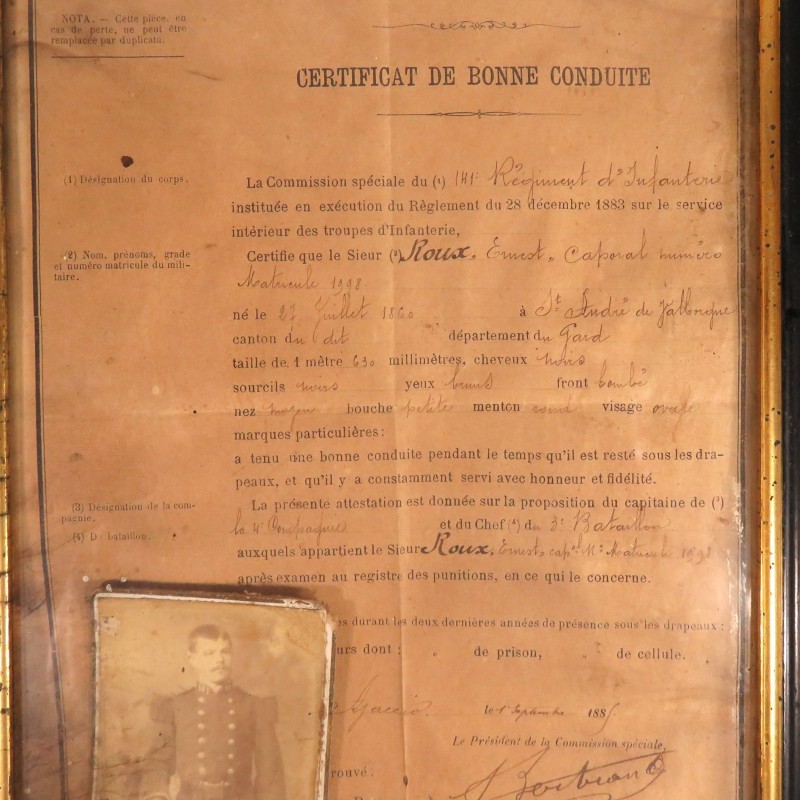 NOTA. — Cette pièce, en
cas de perte, ne peut être
remplacée par duplicata.
CERTIFICAT DE BONNE CONDUITE
(1) Désignation du corps.
La Commission spéciale du (1) 141e Régiment d'Infanterie
instituée en exécution du Règlement du 28 décembre 1883 sur le service
intérieur des troupes d'Infanterie,
(2) Nom, prénoms, grade
et numéro matricule du mili-
taire.
Certifie que le Sieur (2) Roux, Ernest, Caporal numéro
Matricule 1998
né le 27 Juillet 1860 à St André de Valborgne
canton du dit département du Gard
taille de 1 mètre 630 millimètres, cheveux noirs
sourcils noirs yeux bruns front bombé
nez moyen bouche petite menton rond visage ovale
marques particulières :
a tenu une bonne conduite pendant le temps qu'il est resté sous les dra-
peaux, et qu'il y a constamment servi avec honneur et fidélité.
(3) Désignation de la com-
pagnie.
(4) Du bataillon.
La présente attestation est donnée sur la proposition du capitaine de (3)
la 4e Compagnie et du Chef (4) du 3e Bataillon
auxquels appartient le Sieur Roux, Ernest, capal No Matricule 1998
après examen au registre des punitions, en ce qui le concerne.
durant les deux dernières années de présence sous les drapeaux :
urs dont : " de prison, " de cellule.
Ajaccio, le 1er Septembre 1885
Le Président de la Commission spéciale,
rouvé.
Bertrand